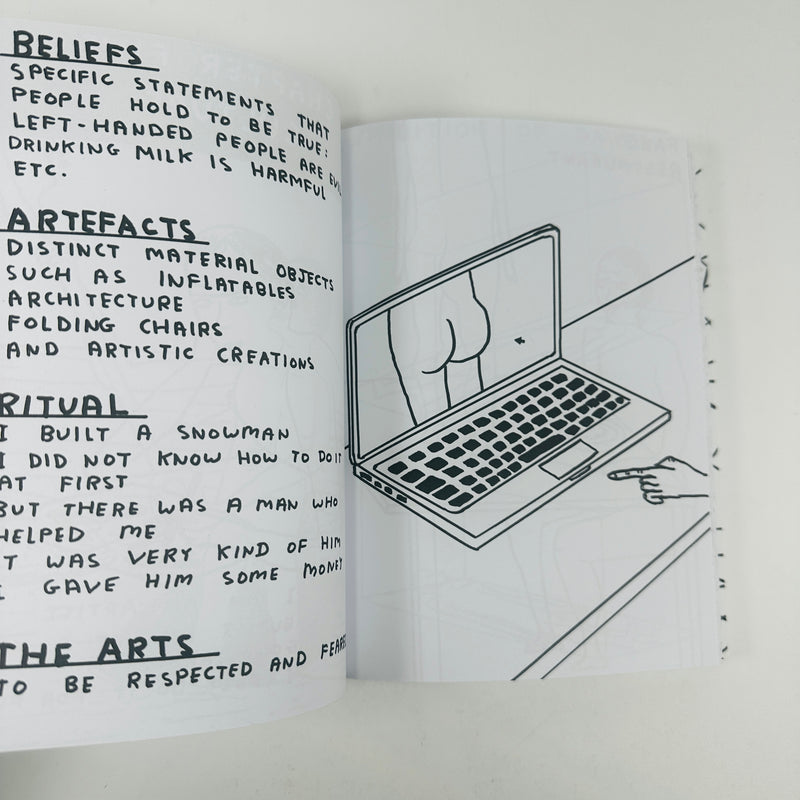 BELIEFS
SPECIFIC STATEMENTS THAT
PEOPLE HOLD TO BE TRUE:
LEFT-HANDED PEOPLE ARE
DRINKING MILK IS HARMFUL
ETC.
ARTEFACTS
DISTINCT MATERIAL OBJECTS
SUCH AS INFLATABLES
ARCHITECTURE
FOLDING CHAIRS
AND ARTISTIC CREATIONS
RITUAL
I BUILT A SNOWMAN
I DID NOT KNOW HOW TO DO IT
AT FIRST
BUT THERE WAS A MAN WHO
HELPED ME
IT WAS VERY KIND OF HIM
I GAVE HIM SOME MONEY
THE ARTS
TO BE RESPECTED AND